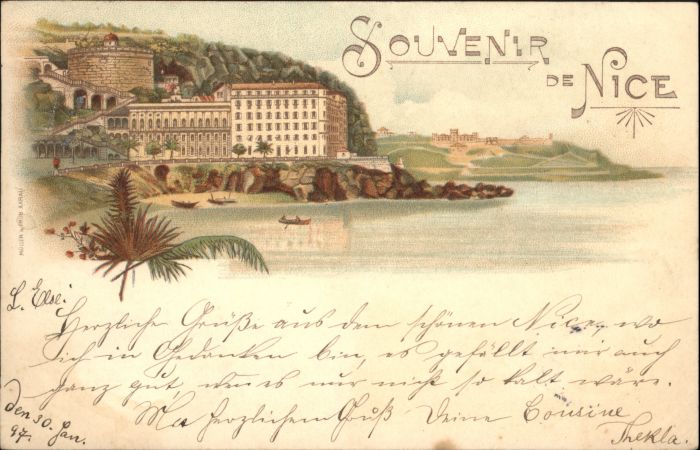 SOUVENIR
DE NICE
MÜLLER & TRÜB AARAU
L. Else!
Herzliche Grüße aus dem schönen Nice, wo
ich in Gedanken bin, es gefällt mir auch
ganz gut, wen es nur nicht so kalt wäre.
Mit herzlichem Gruß Deine Cousine
Thekla.
den 30. Jan.
97.